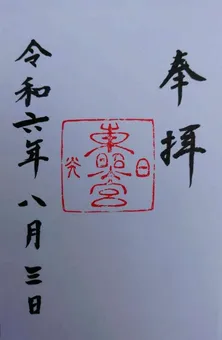 奉拝
日光
東照宮
令和六年八月三日